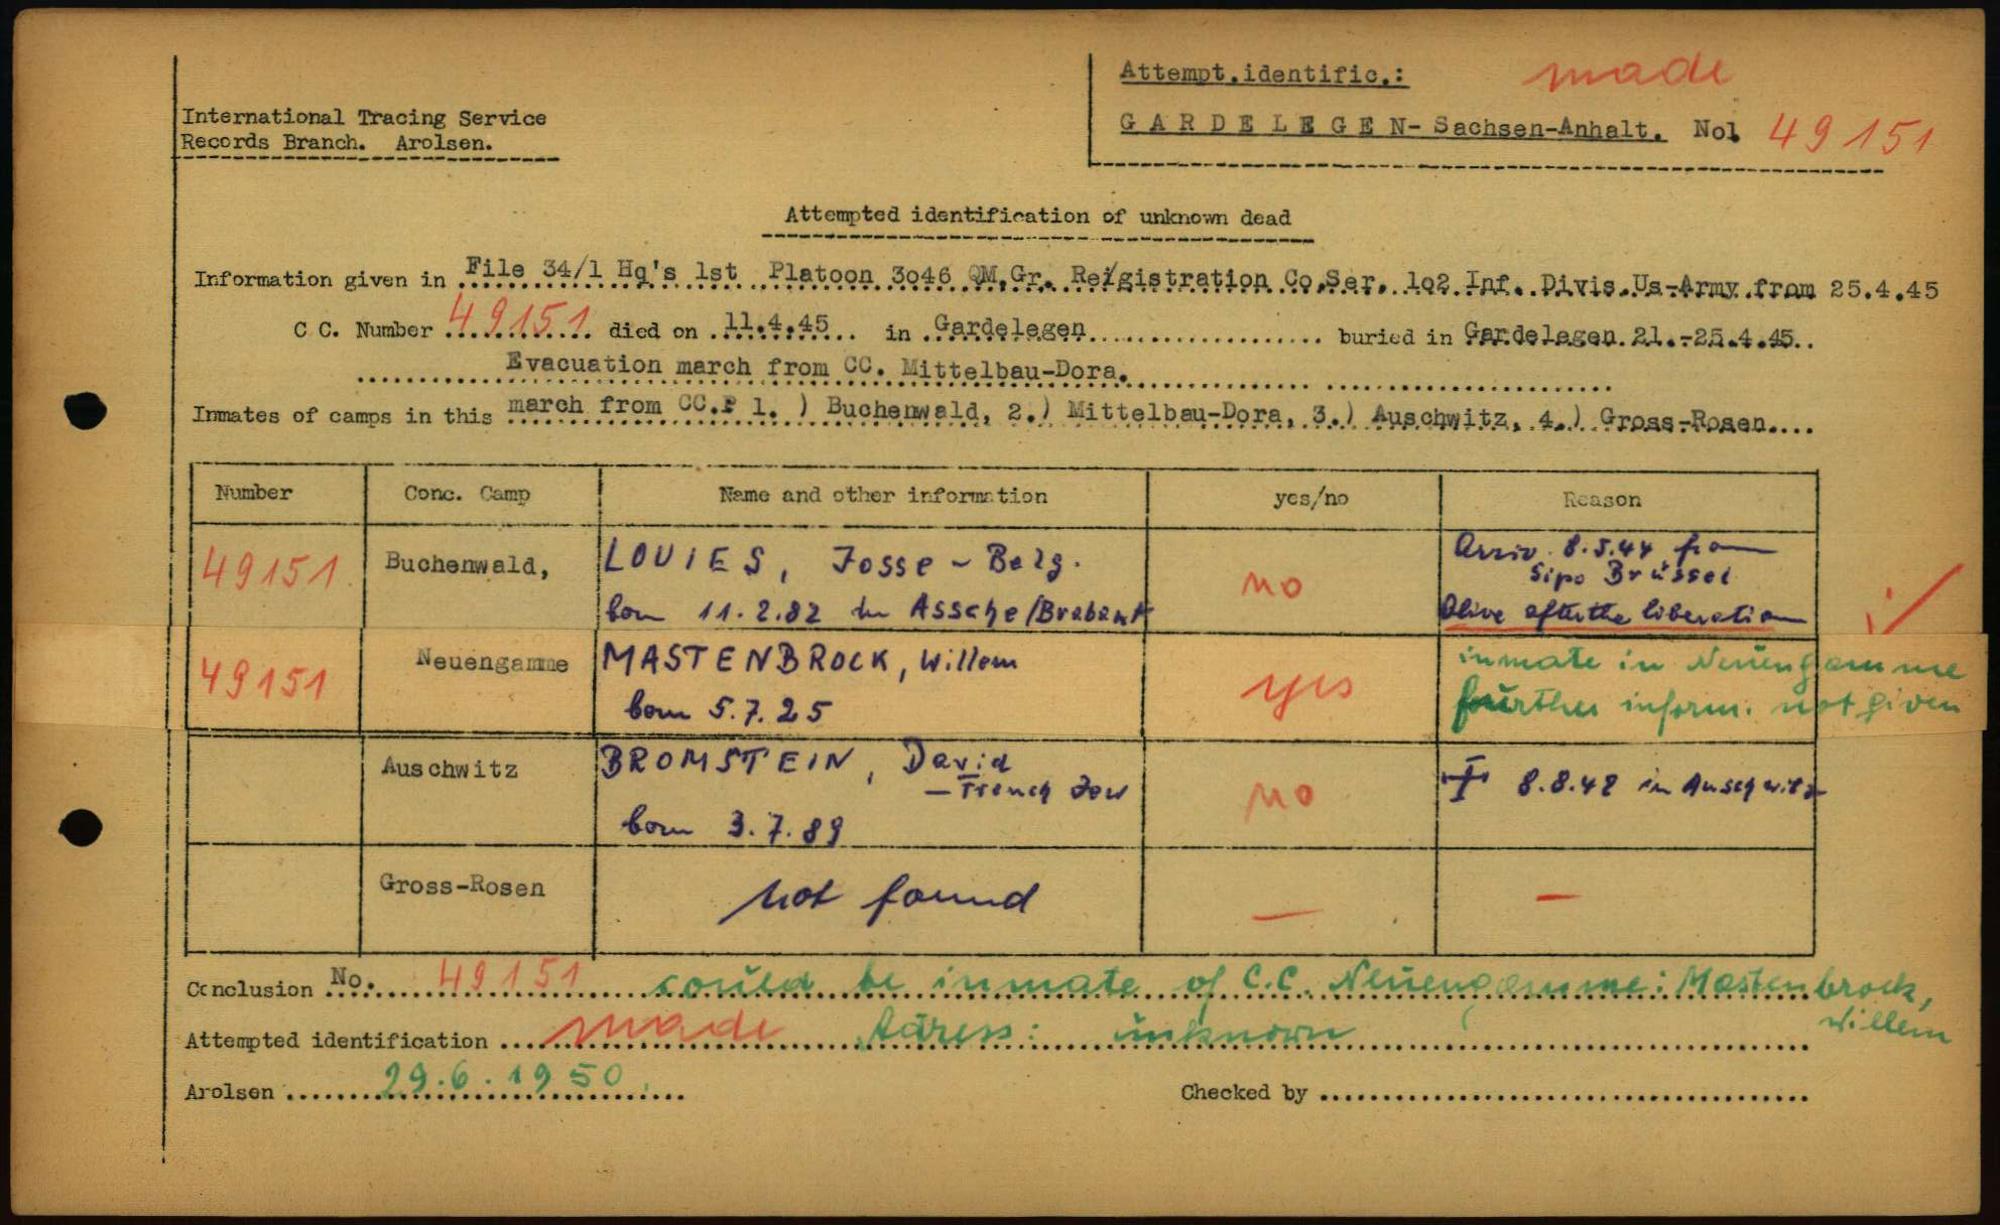 Attempt.identific.: made
International Tracing Service
Records Branch. Arolsen.
GARDELEGEN-Sachsen-Anhalt. No. 49151
Attempted identification of unknown dead
Information given in File 34/1 Hq's 1st Platoon 3o46 QM.Gr. Re/gistration Co.Ser. 1o2 Inf. Divis.Us-Army from 25.4.45
C C. Number 49151 died on 11.4.45 in Gardelegen buried in Gardelegen 21.-25.4.45.
Evacuation march from CC. Mittelbau-Dora.
Inmates of camps in this march from CC.P 1. ) Buchenwald, 2.) Mittelbau-Dora, 3.) Auschwitz, 4.) Gross-Rosen
Number Conc. Camp Name and other information yes/no Reason
49151 Buchenwald, LOUIES, Josse - Belg. no Arriv. 8.5.44 from
Sipo Brüssel
born 11.2.82 in Assche/Brabant Alive after the liberation
49151 Neuengamme MASTENBROCK, Willem yes inmate in Neuengamme
born 5.7.25 further inform. not given
Auschwitz BROMSTEIN, David no † 8.8.42 in Auschwitz
- French Jew
born 3.7.89
Gross-Rosen not found — —
Conclusion No. 49151 could be inmate of C.C. Neuengamme: Mastenbrock,
Willem
Attempted identification made Adress: unknown
Arolsen 29.6.1950. Checked by